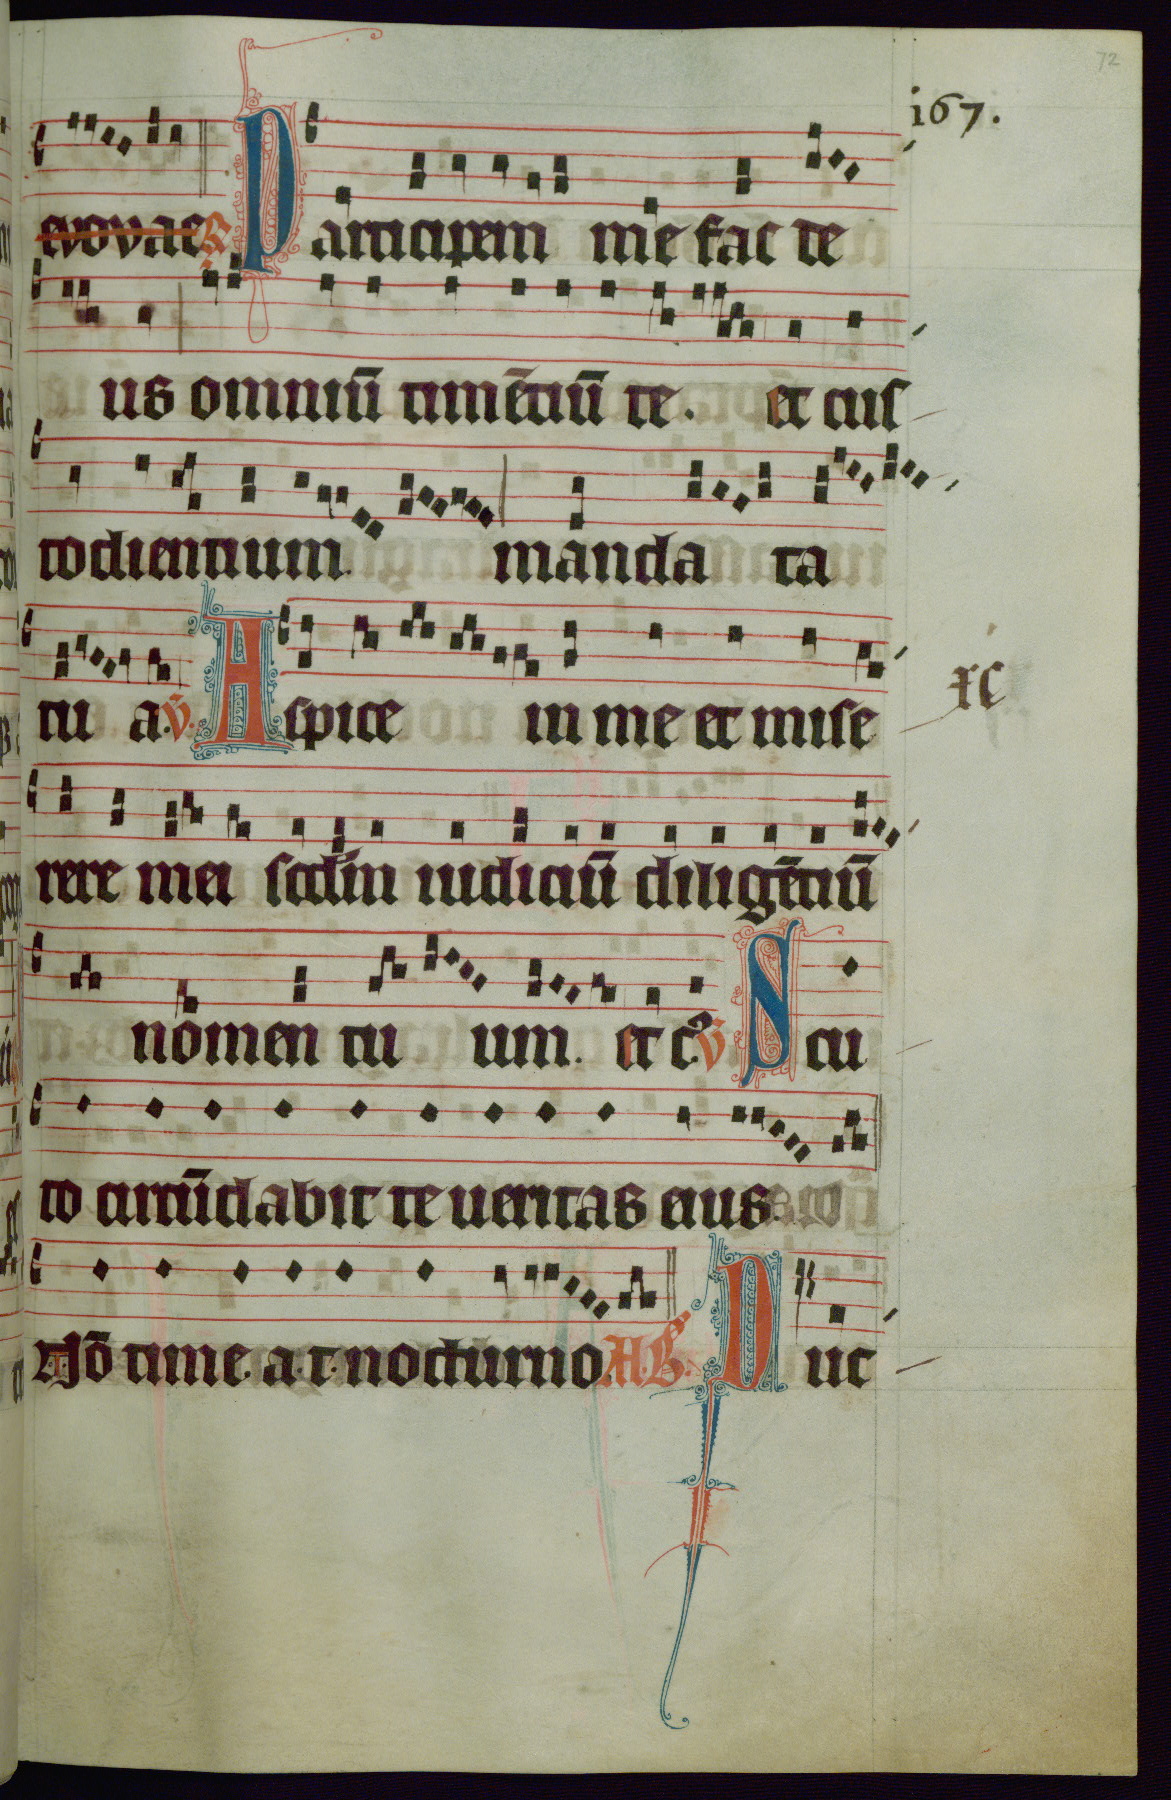 72
167.
evovae R Participem me fac te
us omniū timētiū te. et cus
todientium. manda ta
tu a. V. Aspice in me et mise
xc
rere mei scdm iudiciū diligētiū
nomen tu um. et c. V Scu
to circūdabit te ueritas eius.
Nō time. a. t. nocturno. A. B. Duc